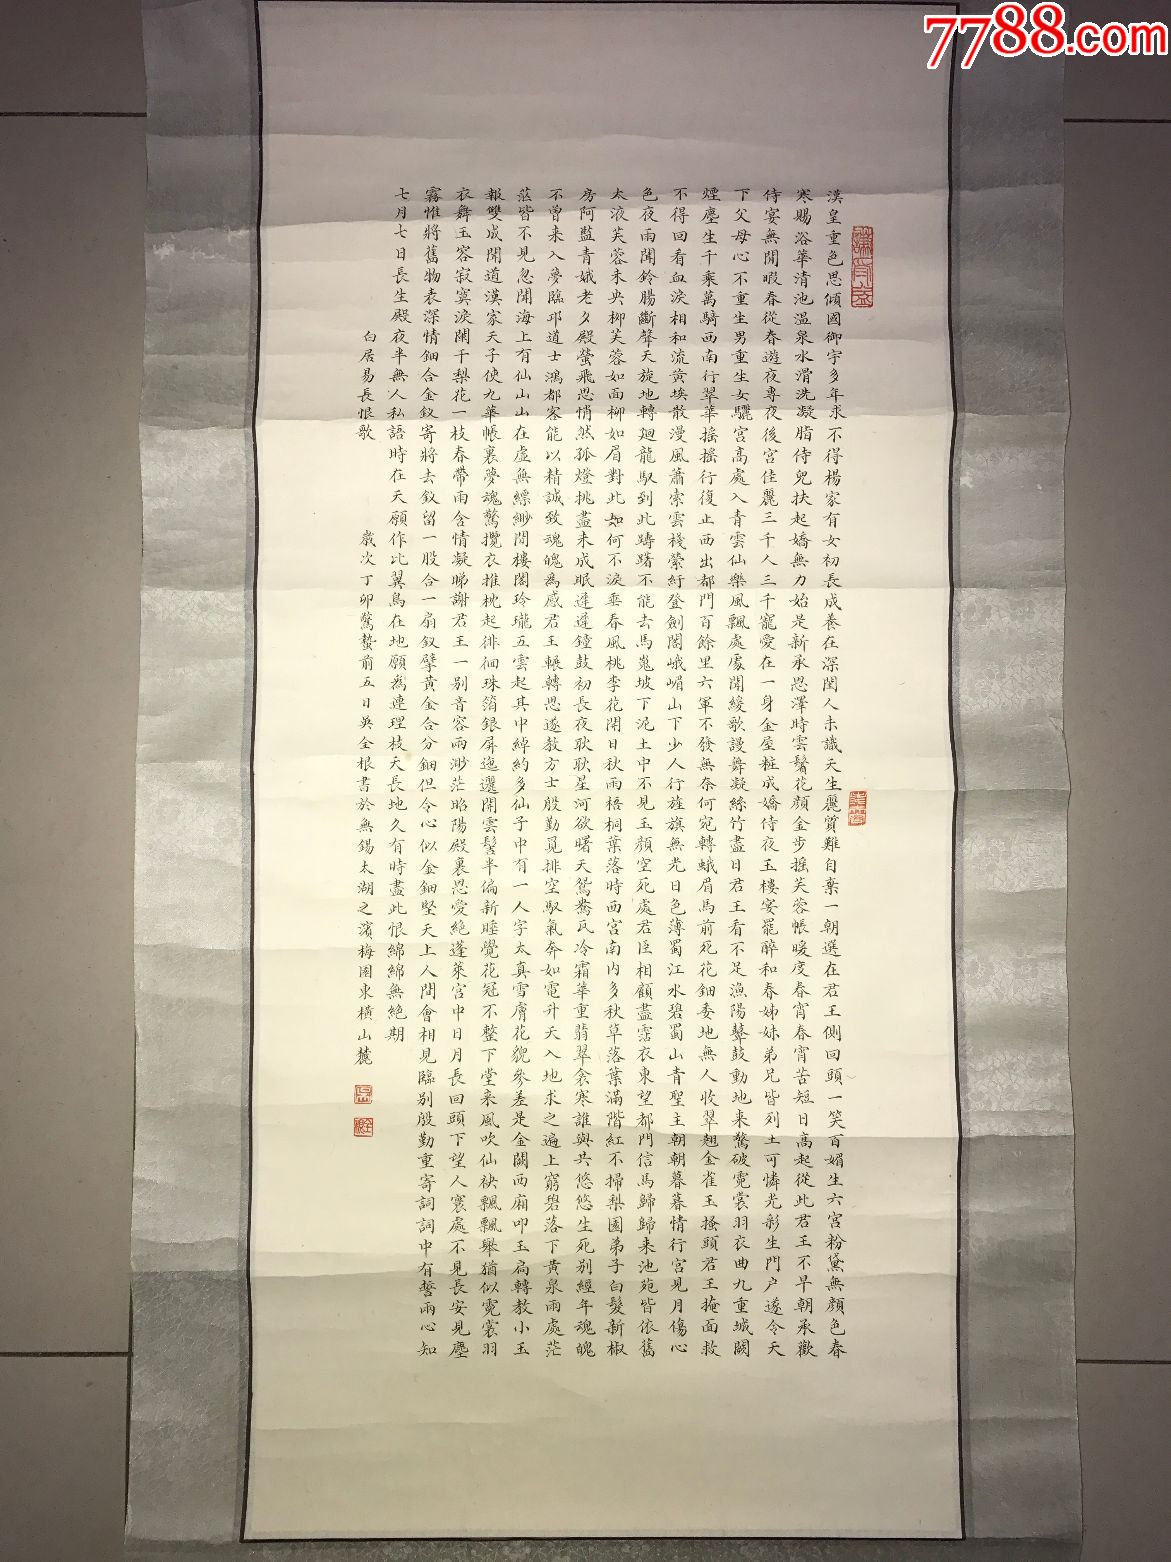 7788.com
漢皇重色思傾國御宇多年求不得楊家有女初長成養在深閨人未識天生麗質難自棄一朝選在君王側回頭一笑百媚生六宮粉黛無顏色春
寒賜浴華清池溫泉水滑洗凝脂侍兒扶起嬌無力始是新承恩澤時雲鬢花顏金步搖芙蓉帳暖度春宵春宵苦短日高起從此君王不早朝承歡
侍宴無閒暇春從春遊夜專夜後宮佳麗三千人三千寵愛在一身金屋粧成嬌侍夜玉樓宴罷醉和春姊妹弟兄皆列土可憐光彩生門户遂令天
下父母心不重生男重生女驪宮高處入青雲仙樂風飄處處聞緩歌謾舞凝絲竹盡日君王看不足漁陽鼙鼓動地来驚破霓裳羽衣曲九重城闕
煙塵生千乘萬騎西南行翠華搖搖行復止西出都門百餘里六軍不發無奈何宛轉蛾眉馬前死花鈿委地無人收翠翹金雀玉搔頭君王掩面救
不得回看血淚相和流黃埃散漫風蕭索雲棧縈紆登劍閣峨嵋山下少人行旌旗無光日色薄蜀江水碧蜀山青聖主朝朝暮暮情行宮見月傷心
色夜雨聞鈴腸斷聲天旋地轉廻龍馭到此躊躇不能去馬嵬坡下泥土中不見玉顏空死處君臣相顧盡霑衣東望都門信馬歸歸来池苑皆依舊
太液芙蓉未央柳芙蓉如面柳如眉對此如何不淚垂春風桃李花開日秋雨梧桐葉落時西宮南内多秋草落葉滿階紅不掃梨園弟子白髮新椒
房阿監青娥老夕殿螢飛思悄然孤燈挑盡未成眠遲遲鐘鼓初長夜耿耿星河欲曙天鴛鴦瓦冷霜華重翡翠衾寒誰與共悠悠生死别經年魂魄
不曾来入夢臨邛道士鴻都客能以精誠致魂魄為感君王輾轉思遂教方士殷勤覓排空馭氣奔如電升天入地求之遍上窮碧落下黃泉兩處茫
茫皆不見忽聞海上有仙山山在虛無縹緲間樓閣玲瓏五雲起其中綽約多仙子中有一人字太真雪膚花貌參差是金闕西廂叩玉扃轉教小玉
報雙成聞道漢家天子使九華帳裏夢魂驚攬衣推枕起徘徊珠箔銀屏迤邐開雲髻半偏新睡覺花冠不整下堂来風吹仙袂飄飄舉猶似霓裳羽
衣舞玉容寂寞淚闌干梨花一枝春帶雨含情凝睇謝君王一别音容兩渺茫昭陽殿裏恩愛絕蓬萊宮中日月長回頭下望人寰處不見長安見塵
霧惟將舊物表深情鈿合金釵寄將去釵留一股合一扇釵擘黃金合分鈿但令心似金鈿堅天上人間會相見臨别殷勤重寄詞詞中有誓兩心知
七月七日長生殿夜半無人私語時在天願作比翼鳥在地願為連理枝天長地久有時盡此恨綿綿無絕期
白居易長恨歌 歲次丁卯驚蟄前五日吳全根書於無錫太湖之濱梅園東橫山麓